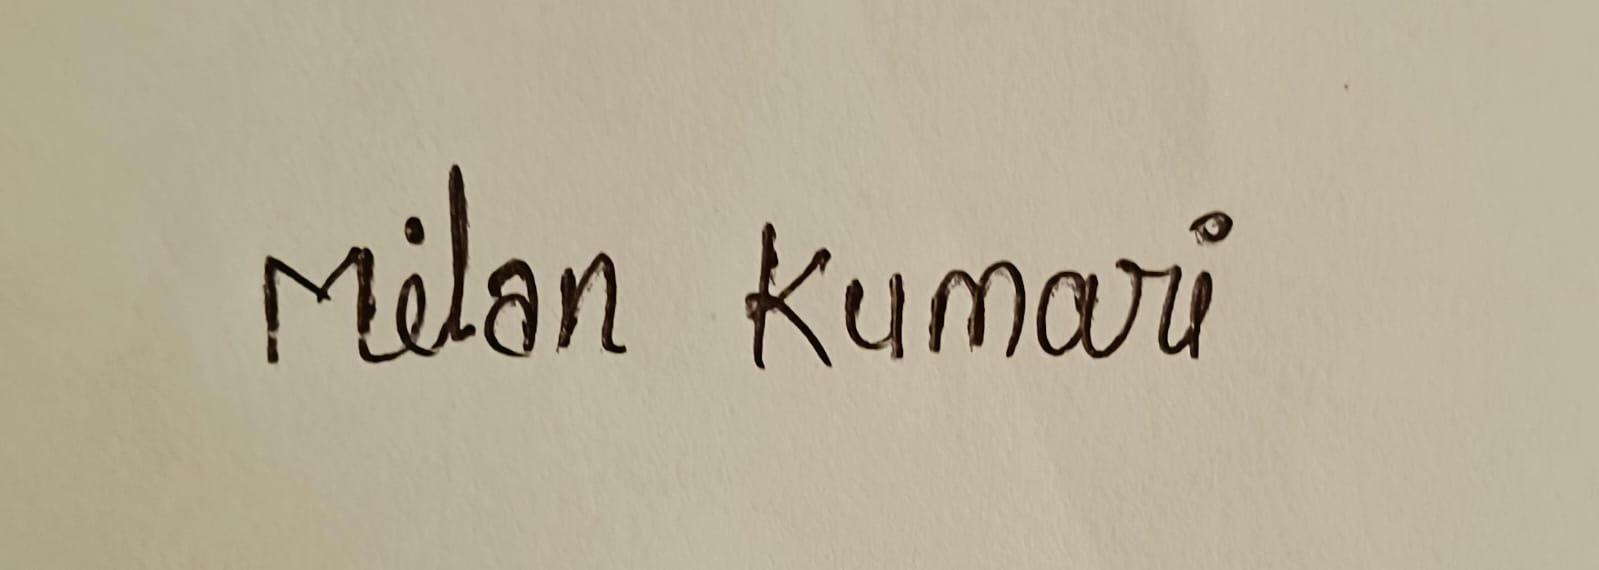 Milan Kumari